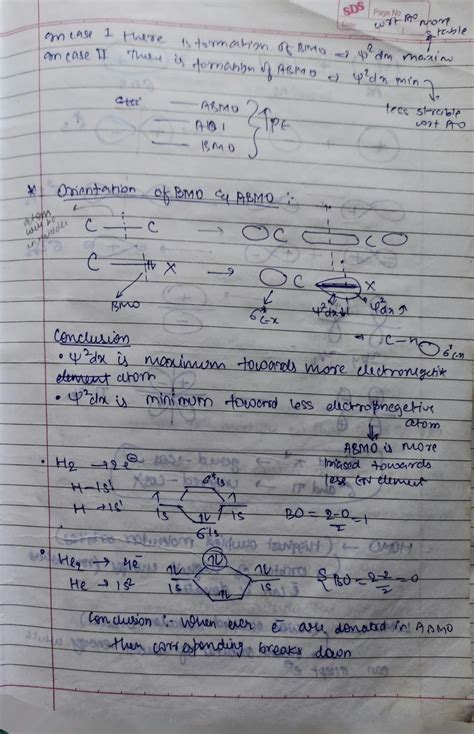 SDS Page No.
Date
wrt AO more stable
In case I there is formation of BMO ⇒ ψ²dx maxim
In case II There is formation of ABMO ⇒ ψ²dx min
less stable
wrt AO
ABMO
AO
BMO
↑PE
* Orientation of BMO & ABMO :-
atom
C — C → C C
C X → C X
BMO
σ*C-x ψ²dx↓ ψ²dx↑
Conclusion
• ψ²dx is maximum towards more electronegative
element atom
• ψ²dx is minimum toward less electronegative
atom
ABMO is more
biased towards
less EN element
• H₂ → 2e⊖
σ*1s
H → 1s¹
H → 1s¹ 1s 1s BO = 2-0/2 = 1
σ1s
• He₂ → 4e
He → 1s² BO = 2-2/2 = 0
Conclusion :- When ever e⁻ are donated in ABMO
then corresponding breaks down